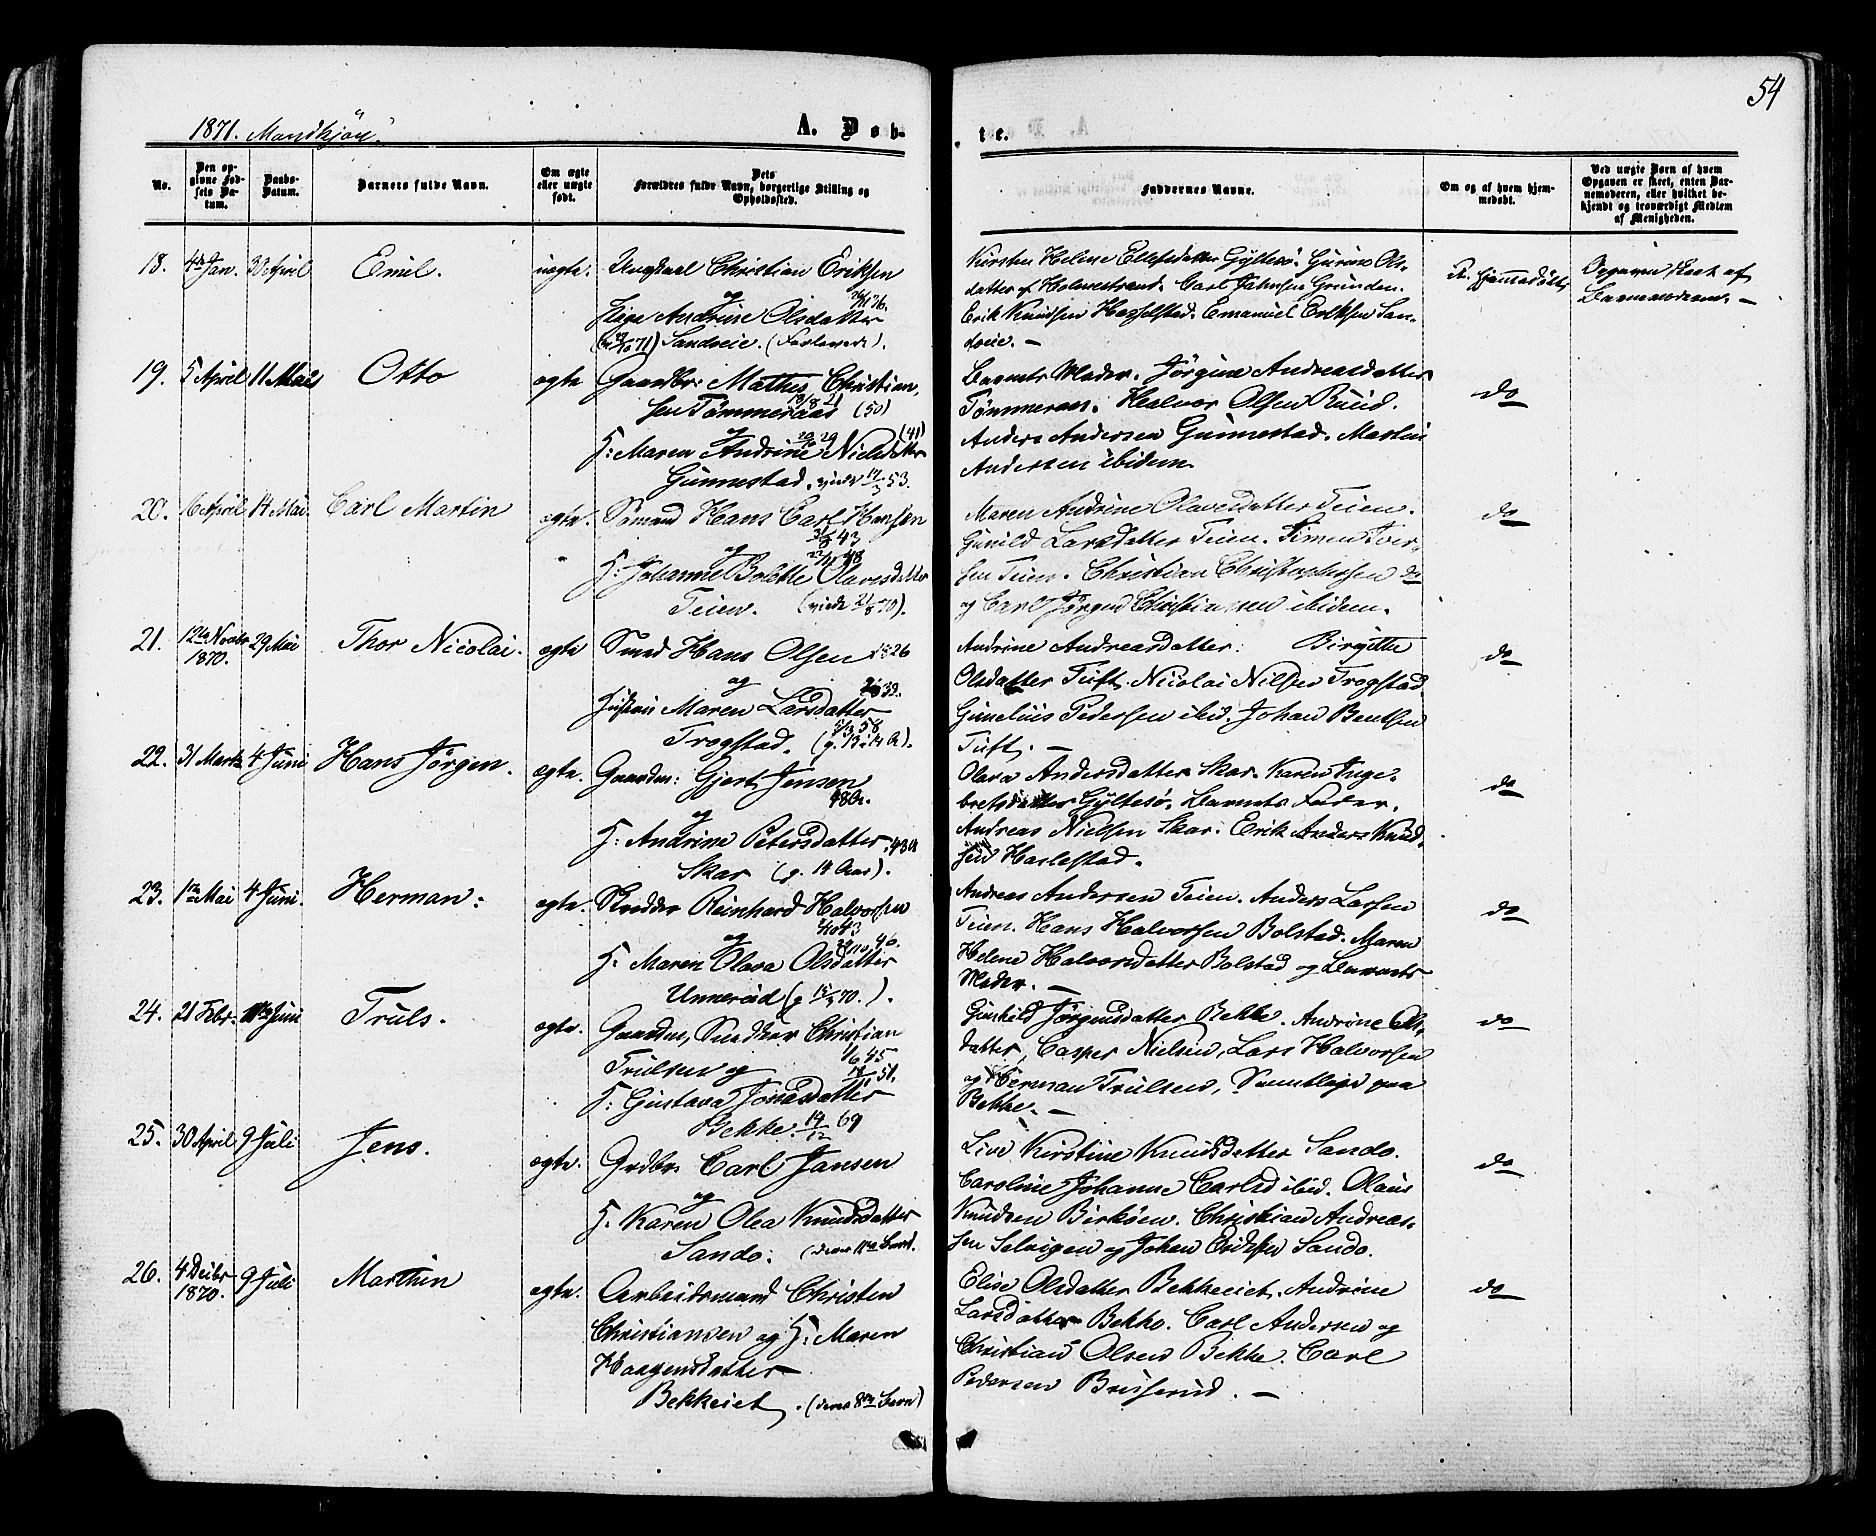 54
1871. Mandkjøn.
A. Døb- te.
No.
Den opgivne Fødsels Datum.
Daabs-Datum.
Barnets fulde Navn.
Om ægte eller uægte født.
Dets Forældres fulde Navn, borgerlige Stilling og Opholdssted.
Faddernes Navne.
Om og af hvem hjemmedøbt.
Ved uægte Børn af hvem Opgaven er skeet, enten Barnemoderen, eller hvilket bekjendt og troværdigt Medlem af Menigheden.
18. 4de Jan. 30 April Emil. uægte. Ungkarl Christian Eriksen
og
Andrine Olsdatter
Sandveie. (Forlovede).
Kirsten Helene Ellefsdatter Gyltesø. Gurine Ols-
datter af Holmestrand. Carl Johnsen Grunden.
Erik Knudsen Hasselstad. Emanuel Eriksen San-
dveie. —
Ei hjemmedøbt
Opgaven skeet af
Barnemoderen. —
19. 5 April 11 Mai Otto ægte Gaardbr: Mathis Christian-
sen Tømmeraas (50)
og (41)
H: Maren Andrine Nielsdatter
Gunnestad. viede 17/3 53.
Barnets Moder. Jørgine Andreasdatter
Tømmeraas. Halvor Olsen Ruud.
Anders Andersen Gunnestad. Martin
Andersen ibidem.
do
20. 16 April 14 Mai Carl Martin ægte. Sømand Hans Carl Hansen
og
H: Johanne Bolette Olavesdatter
Teien. (viede 21/8 70).
Maren Andrine Olavesdatter Teien.
Gunild Larsdatter Teien. Simen Iver-
sen Teien. Christian Christophersen do
og Carl Jørgen Christiansen ibidem.
do
21. 12te Novbr 1870. 29 Mai Thor Nicolai. ægte Smed Hans Olsen 1826
og
Hustru Maren Larsdatter
Trogstad.
Andrine Andreasdatter: Birgitte
Olsdatter Tuft. Nicolai Nilsen Trogstad
Gunelius Pedersen ibid. Johan Bentsen
Tuft. —
do
22. 31 Marts 4 Juni Hans Jørgen. ægte. Gaardm: Gjert Jensen
48 A.
og
H: Andrine Petersdatter 43 A
Skar (g. 14 Aar).
Olava Andersdatter Skar. Karen Inge-
bretsdatter Gyltesø. Barnets Fader.
Andreas Nielsen Skar. Erik Anders Knud-
sen Haslestad.
do
23. 1ste Mai 4 Juni. Herman: ægte. Skredder Reinhard Halvorsen
og
H: Maren Olava Olsdatter
Unnerud (g 15/3 70.)
Andreas Andersen Teien. Anders Larsen
Teien. Hans Halvorsen Bolstad. Maren
Helene Halvorsdatter Bolstad og Barnets
Moder. —
do
24. 21 Febr. 11te Juni Truls. ægte. Gaardm, Snedker Christian
Trulsen og 1/6 45
H: Gustava Jonasdatter
Bekke. 19/12 69
Gunhild Jørgensdatter Bekke. Andrine Ols-
datter, Casper Nielsen, Lars Halvorsen
og Herman Trulsen, Samtlige paa
Bekke. —
do
25. 30 April 9 Juli Jens. ægte. Grdbr. Carl Jansen
og
H. Karen Olea Knudsdatter
Sando. (deres 11te Barn).
Live Kirstine Knudsdatter Sando.
Caroline Johanne Carlsd ibid. Olaus
Knudsen Birkøen. Christian Andreas-
sen Selvigen og Johan Sando.
do
26. 4 Decbr 1870. 9 Juli Marthin ægte. Arbeidsmand Christen
Christiansen og H: Maren
Haagensdatter
Bekkeiet. (deres 8de Barn)
Elise Olsdatter Bekkeeiet. Andrine
Larsdatter Bekke. Carl Andersen og
Christian Olsen Bekke. Carl
Pedersen Bruserud. —
do